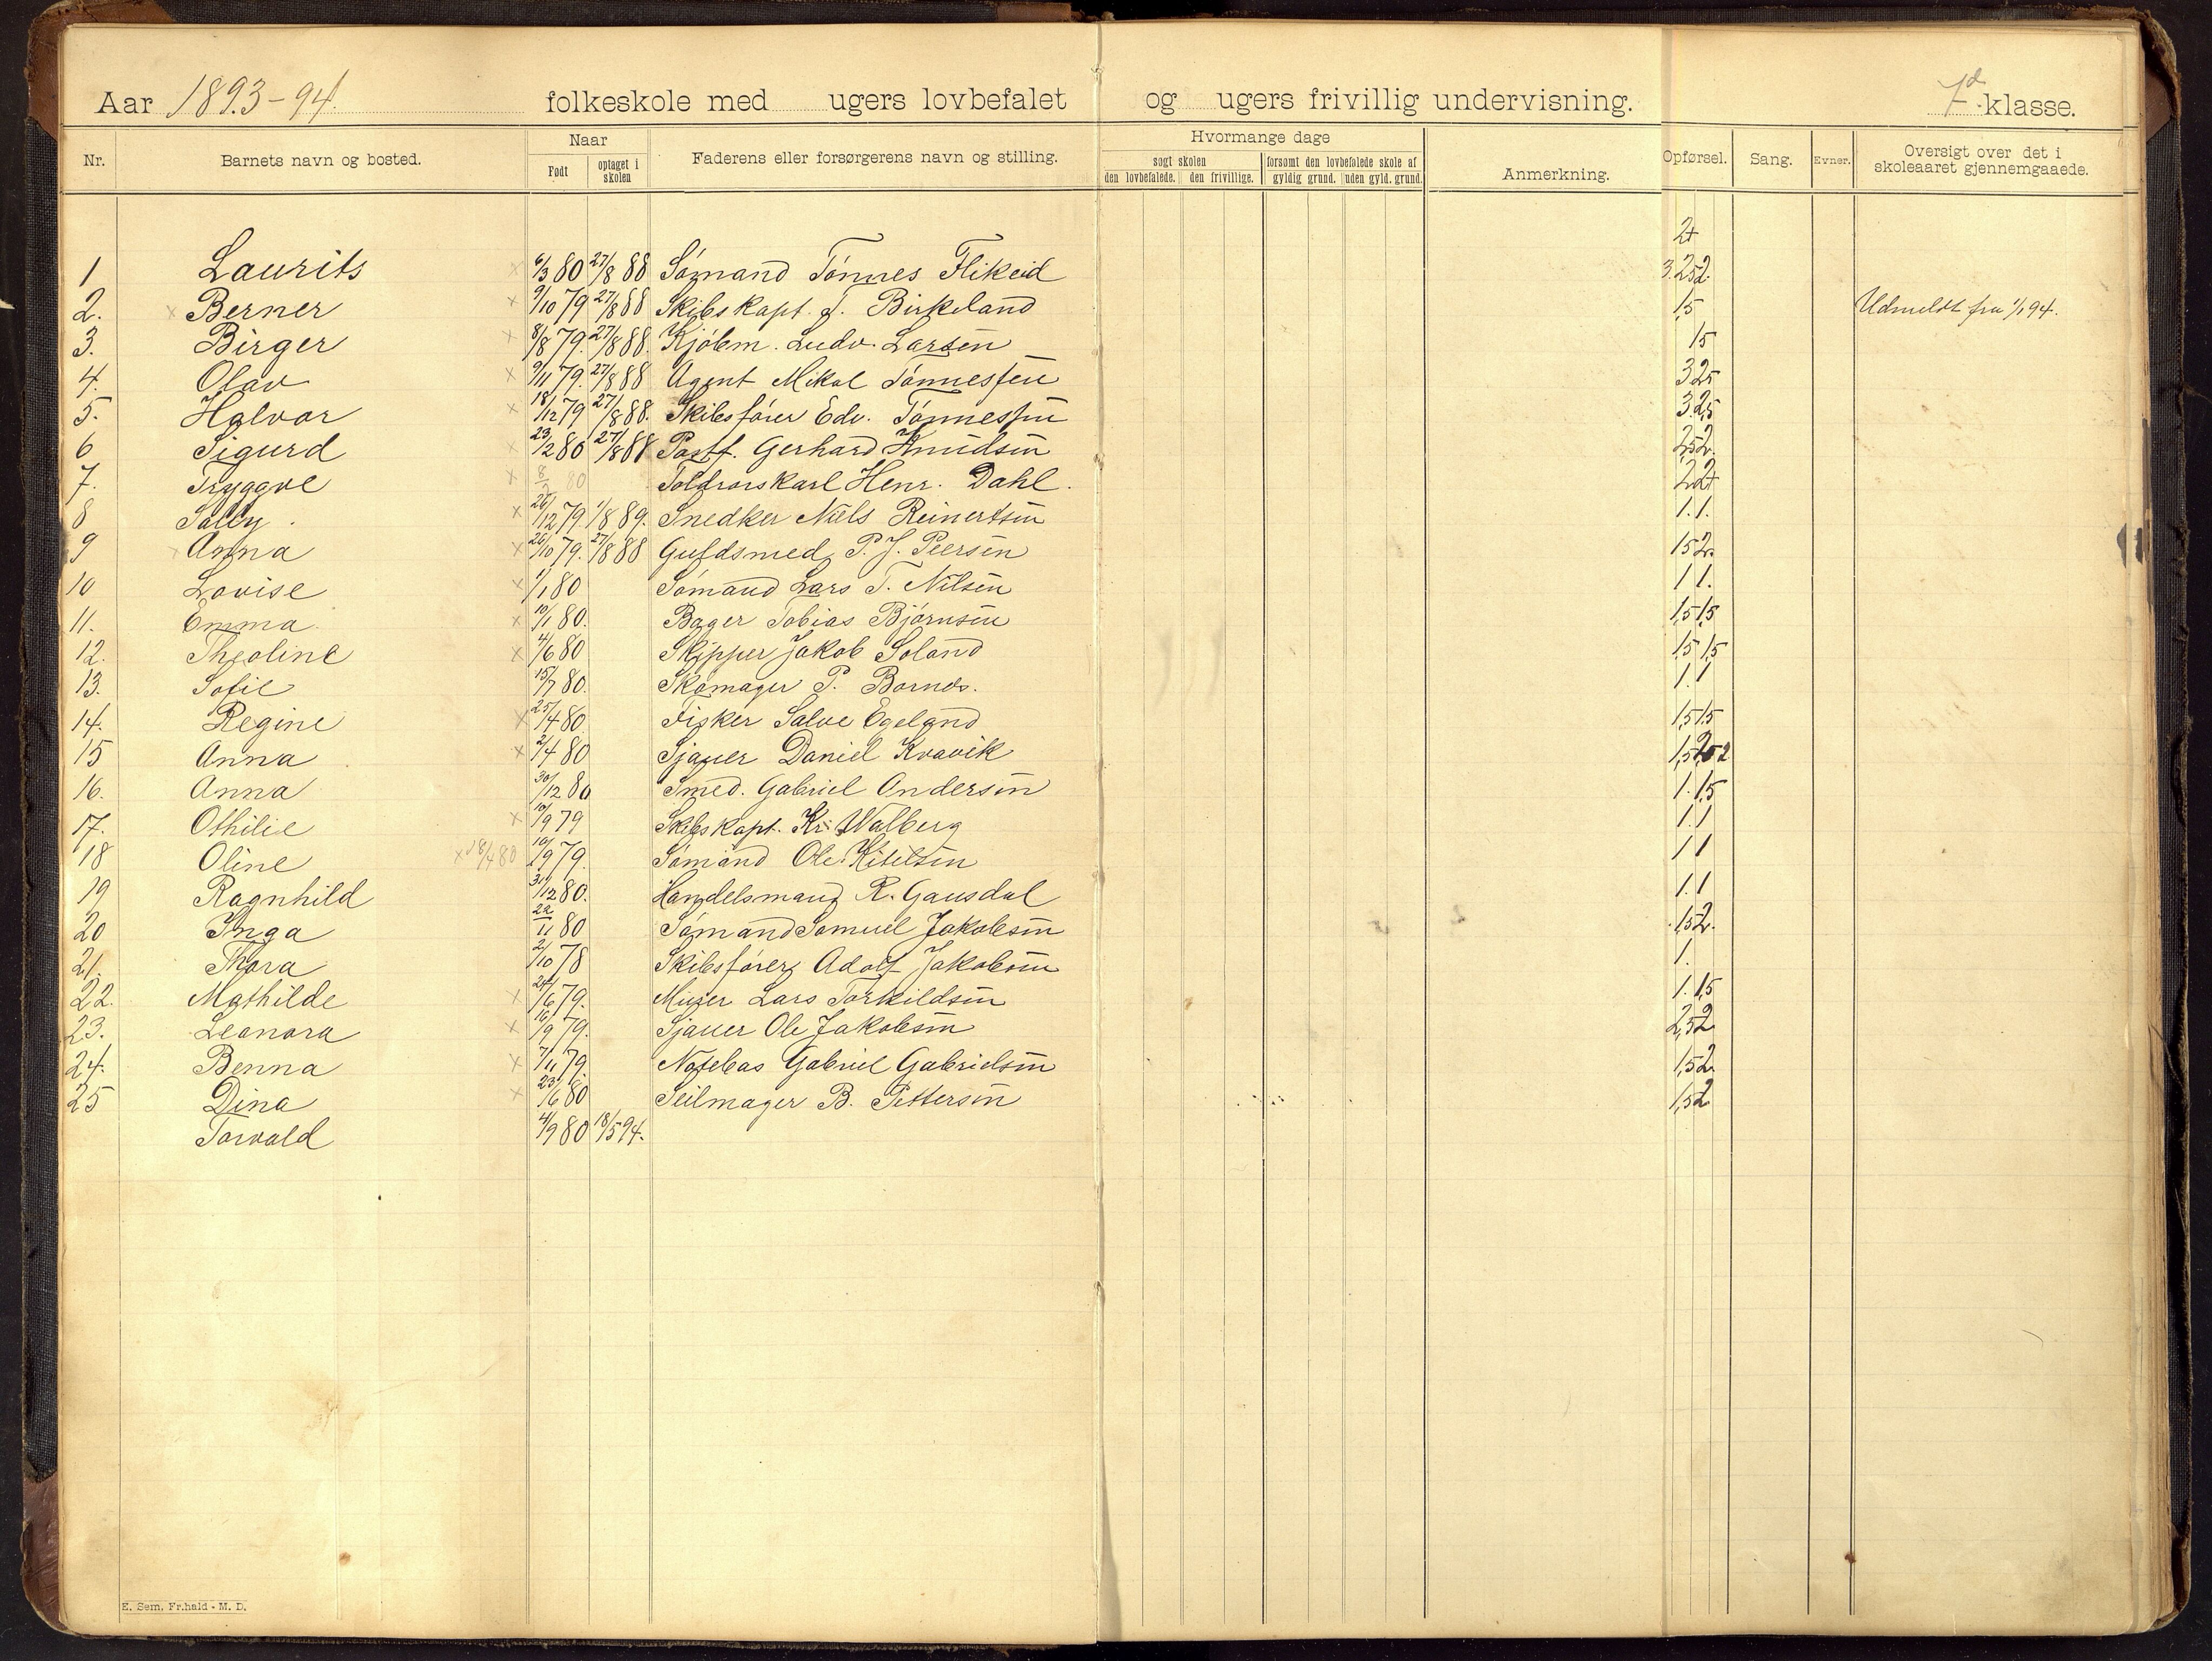 Aar 1893-94. folkeskole med ugers lovbefalet og ugers frivillig undervisning. 7d klasse.
Nr. Barnets navn og bosted. Naar Født optaget i skolen Faderens eller forsørgerens navn og stilling. Hvormange dage søgt skolen den lovbefalede. den frivillige. forsømt den lovbefalede skole af gyldig grund. uden gyld. grund. Anmerkning. Opførsel. Sang. Evner. Oversigt over det i skoleaaret gjennemgaaede.
2+
1 Laurits × 6/3 80 27/8 88 Sømand Tønnes Flikeid 3. 2,5 2.
2. × Berner × 9/10 79 27/8 88 Skibskapt. J. Birkeland 1,5 Udmeldt fra 1/1 94.
3. Birger × 8/8 79. 27/8 88. Kjøbm. Ludv. Larsen 1,5
4. Olav × 9/11 79. 27/8 88 Agent Mikal Tønnessen 3 2,5
5. Halvor × 18/12 79 27/8 88. Skibsfører Edv. Tønnessen 3. 2,5
6 Sigurd × 23/2 80 27/8 88 Postf. Gerhard Knudsen 2,5 2.
7. Tryggve × 80 Toldrorskarl Henr. Dahl. 2 2+
8 Sally. × 26/12 79. 1/8 89. Snedker Niels Reinertsen 1. 1.
9 × Anna × 26/10 79. 27/8 88 Guldsmed P. J. Peersen 1,5 2.
10 Lovise × 1/1 80 Sømand Lars T. Nilsen 1 1.
11. Emma. × 10/1 80. Bager Tobias Bjørnsen 1,5 1,5
12. Theoline × 4/6 80 Skipper Jakob Soland 1,5 1,5
13. Sofie 15/7 80. Skomager P. Bornds. 1. 1
14. Regine × 25/4 80. Fisker Salve Egeland 1,5 1,5
15 Anna × 2/4 80 Sjauer Daniel Kvavik 1,5 2
16. Anna 30/12 80 Smed. Gabriel Andersen 1. 1,5
17. Othilie × 10/9 79 Skibskapt. Kr. Walberg 1. 1
18 Oline × 18/4 80 10/9 79. Sømand Ole Kitilsen 1 1
19 Ragnhild 31/12 80. Handelsmand R. Gausdal 1. 1
20 Inga 22/11 80 Sømand Samuel Jakobsen 1,5 2.
21. Thora 2/10 78 Skibsfører Adolf Jakobsen 1.
22. Mathilde × 24/6 79. Murer Lars Torkildsen 1. 1,5
23. Leonora × 16/9 79. Sjauer Ole Jakobsen 2,5 2
24. Benna × 7/11 79. Notebas Gabriel Gabrielsen 1,5 2
25 Dina × 23/6 80 Seilmager B. Pettersen 1,5 2
Torvald 4/9 80 18/5 94.
E. Sem, Fr.hald - M. D.